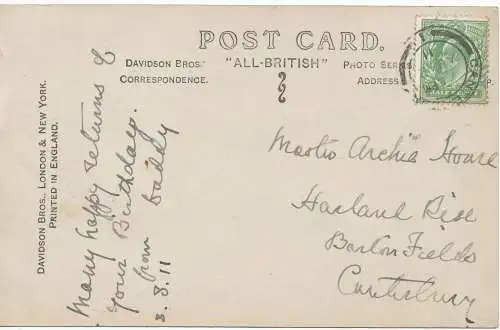 POST CARD.
DAVIDSON BROS.' "ALL-BRITISH" PHOTO SER
CORRESPONDENCE. ADDRESS
DAVIDSON BROS., LONDON & NEW YORK.
PRINTED IN ENGLAND.
Many happy returns of
your Birthday.
from Daddy
3.8.11
Master Archie
Harland Rise
Barton Fields
Canterbury